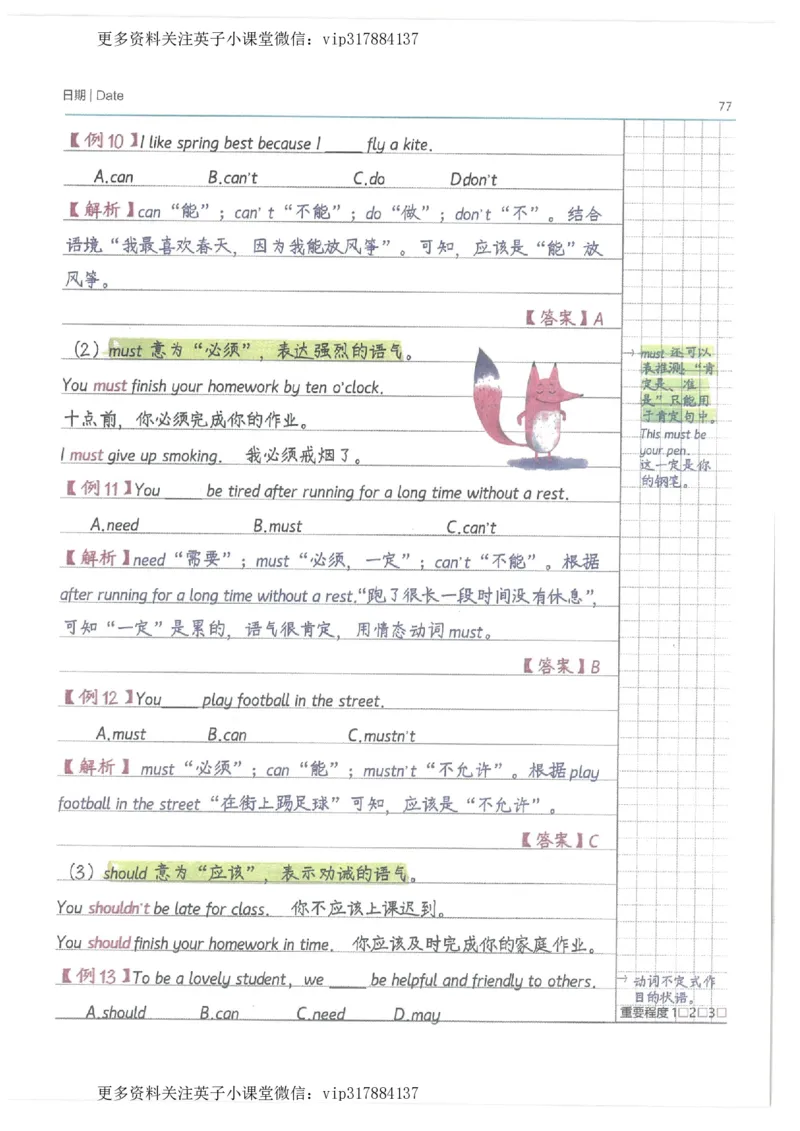 更多资料关注英子小课堂微信：vip317884137
日期 | Date
77
【例10】I like spring best because I ____ fly a kite.
A.can B.can't C.do Ddon't
【解析】can“能”；can't“不能”；do“做”；don't“不”。结合
语境“我最喜欢春天，因为我能放风筝”。可知，应该是“能”放
风筝。
【答案】A
（2）must 意为“必须”，表达强烈的语气。
You must finish your homework by ten o'clock.
十点前，你必须完成你的作业。
I must give up smoking. 我必须戒烟了。
→ must 还可以
表推测，“肯
定是、准
是”只能用
于肯定句中。
This must be
your pen.
这一定是你
的钢笔。
【例11】You ____ be tired after running for a long time without a rest.
A.need B.must C.can't
【解析】need“需要”；must“必须，一定”；can't“不能”。根据
after running for a long time without a rest.“跑了很长一段时间没有休息”，
可知“一定”是累的，语气很肯定，用情态动词 must。
【答案】B
【例12】You____ play football in the street.
A.must B.can C.mustn't
【解析】must“必须”；can“能”；mustn't“不允许”。根据 play
football in the street“在街上踢足球”可知，应该是“不允许”。
【答案】C
（3）should 意为“应该”，表示劝诫的语气。
You shouldn't be late for class. 你不应该上课迟到。
You should finish your homework in time. 你应该及时完成你的家庭作业。
【例13】To be a lovely student, we ____ be helpful and friendly to others.
A.should B.can C.need D.may
→ 动词不定式作
目的状语。
重要程度 1□2□3□
更多资料关注英子小课堂微信：vip317884137